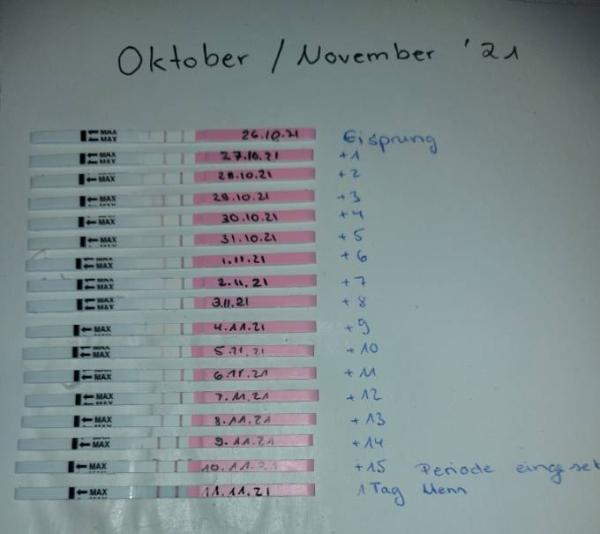 Oktober / November '21
MAX MAX 26.10.21 Eisprung
MAX MAX 27.10.21 +1
MAX 28.10.21 +2
MAX 29.10.21 +3
MAX 30.10.21 +4
MAX 31.10.21 +5
MAX 1.11.21 +6
MAX 2.11.21 +7
MAX 3.11.21 +8
MAX 4.11.21 +9
MAX 5.11.21 +10
MAX 6.11.21 +11
MAX 7.11.21 +12
MAX 8.11.21 +13
MAX 9.11.21 +14
MAX 10.11.21 +15 Periode einges
MAX 11.11.21 1 Tag Mens